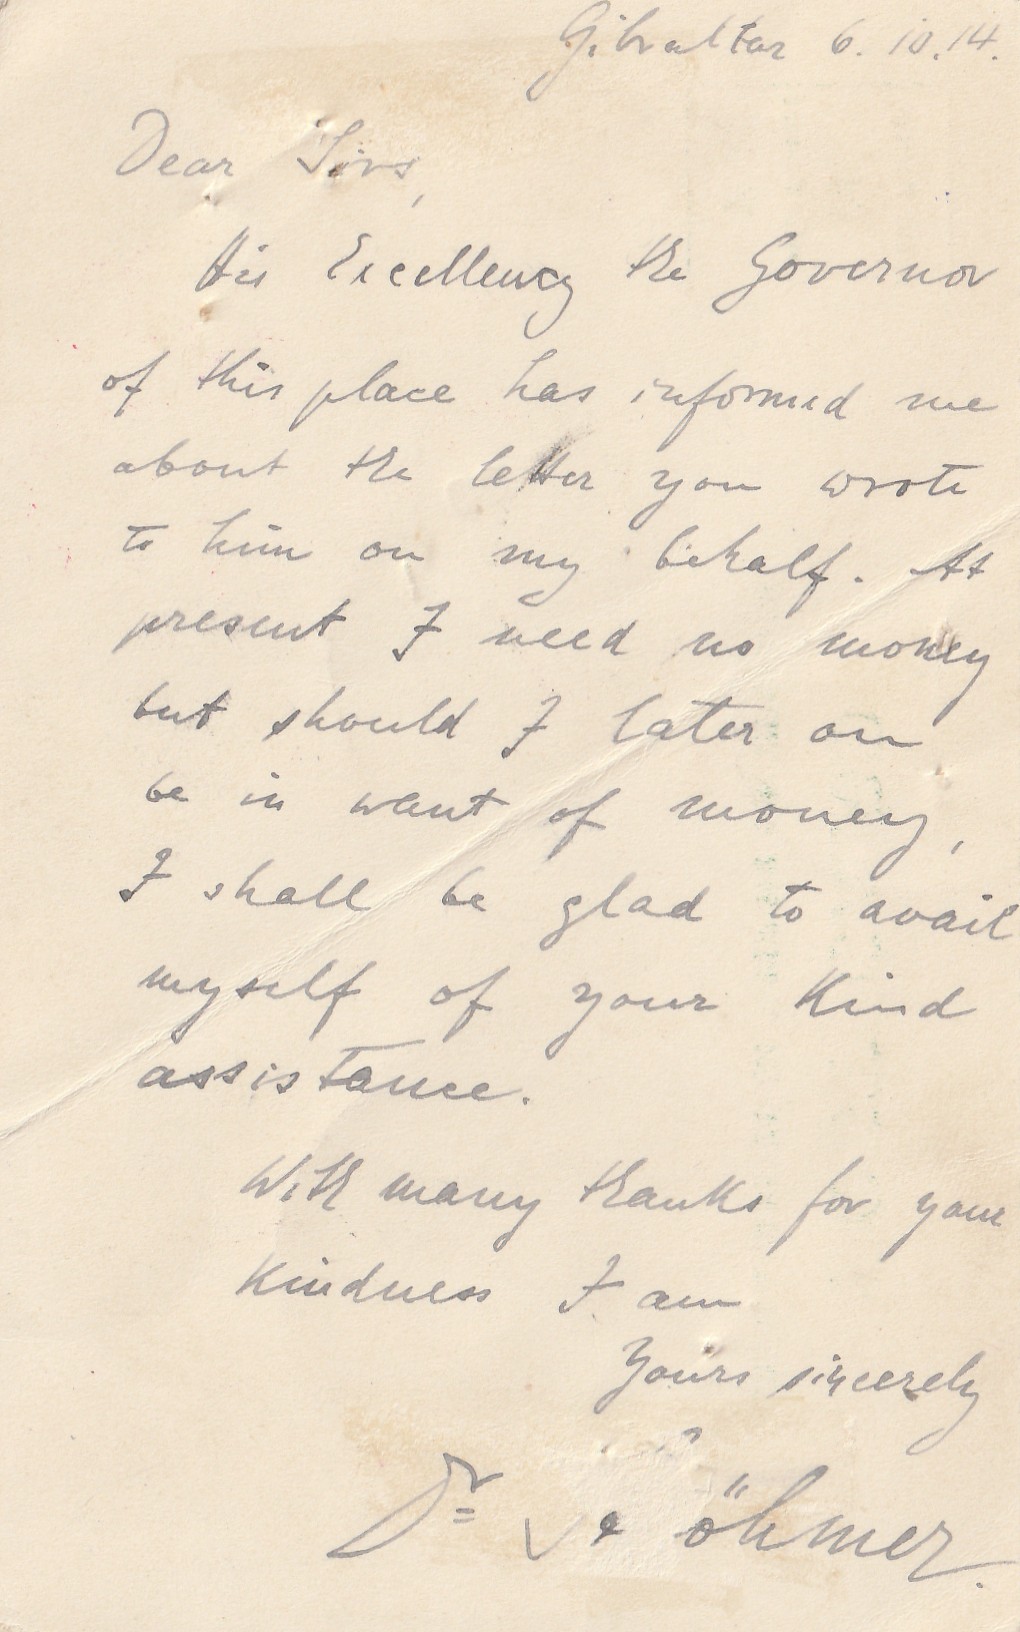 Gibraltar 6.10.14.
Dear Sirs,
His Excellency the Governor
of this place has informed me
about the letter you wrote
to him on my behalf. At
present I need no money
but should I later on
be in want of money,
I shall be glad to avail
myself of your kind
assistance.
With many thanks for your
kindness I am
Yours sincerely
Dr